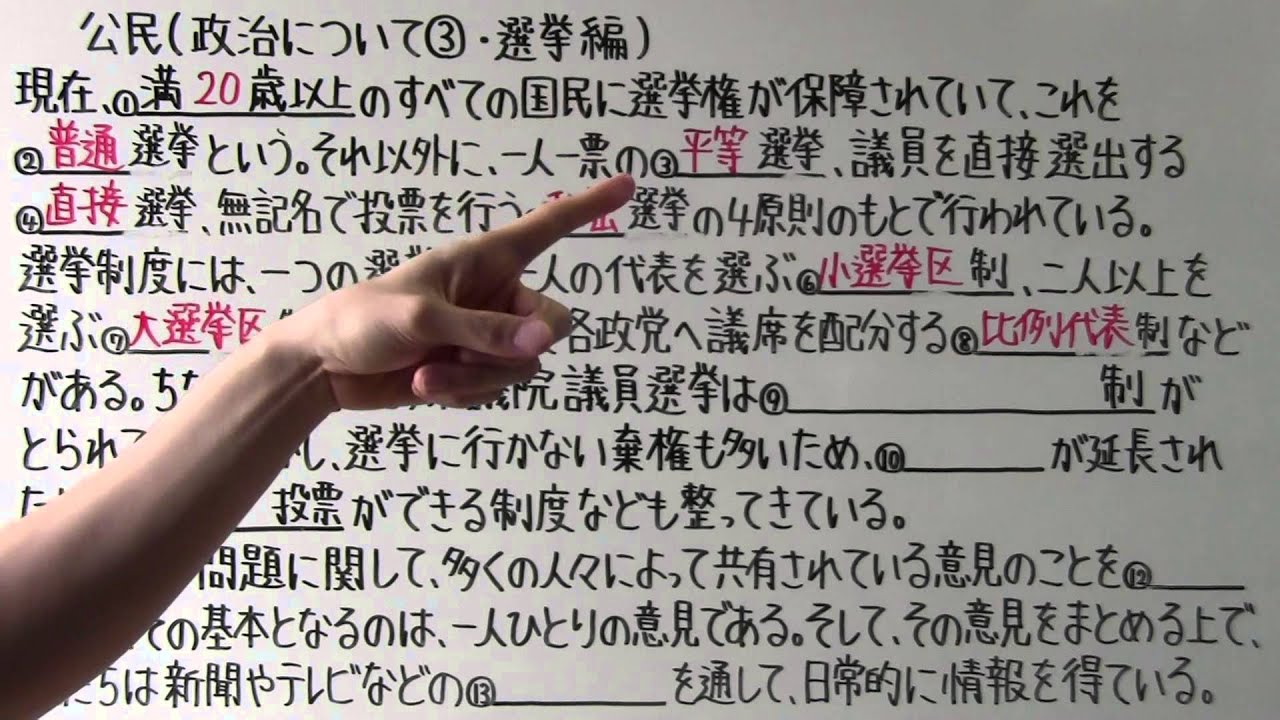 公民(政治について③・選挙編)
現在、①満20歳以上のすべての国民に選挙権が保障されていて、これを
②普通選挙という。それ以外に、一人一票の③平等選挙、議員を直接選出する
④直接選挙、無記名で投票を行う 選挙の4原則のもとで行われている。
選挙制度には、一つの選挙 一人の代表を選ぶ⑥小選挙区制、二人以上を
選ぶ⑦大選挙区 各政党へ議席を配分する⑧比例代表制など
がある。ちな 議院議員選挙は⑨ 制が
とられて し、選挙に行かない棄権も多いため、⑩ が延長され
た 投票ができる制度なども整ってきている。
問題に関して、多くの人々によって共有されている意見のことを⑫
ての基本となるのは、一人ひとりの意見である。そして、その意見をまとめる上で、
たちは新聞やテレビなどの⑬ を通して、日常的に情報を得ている。